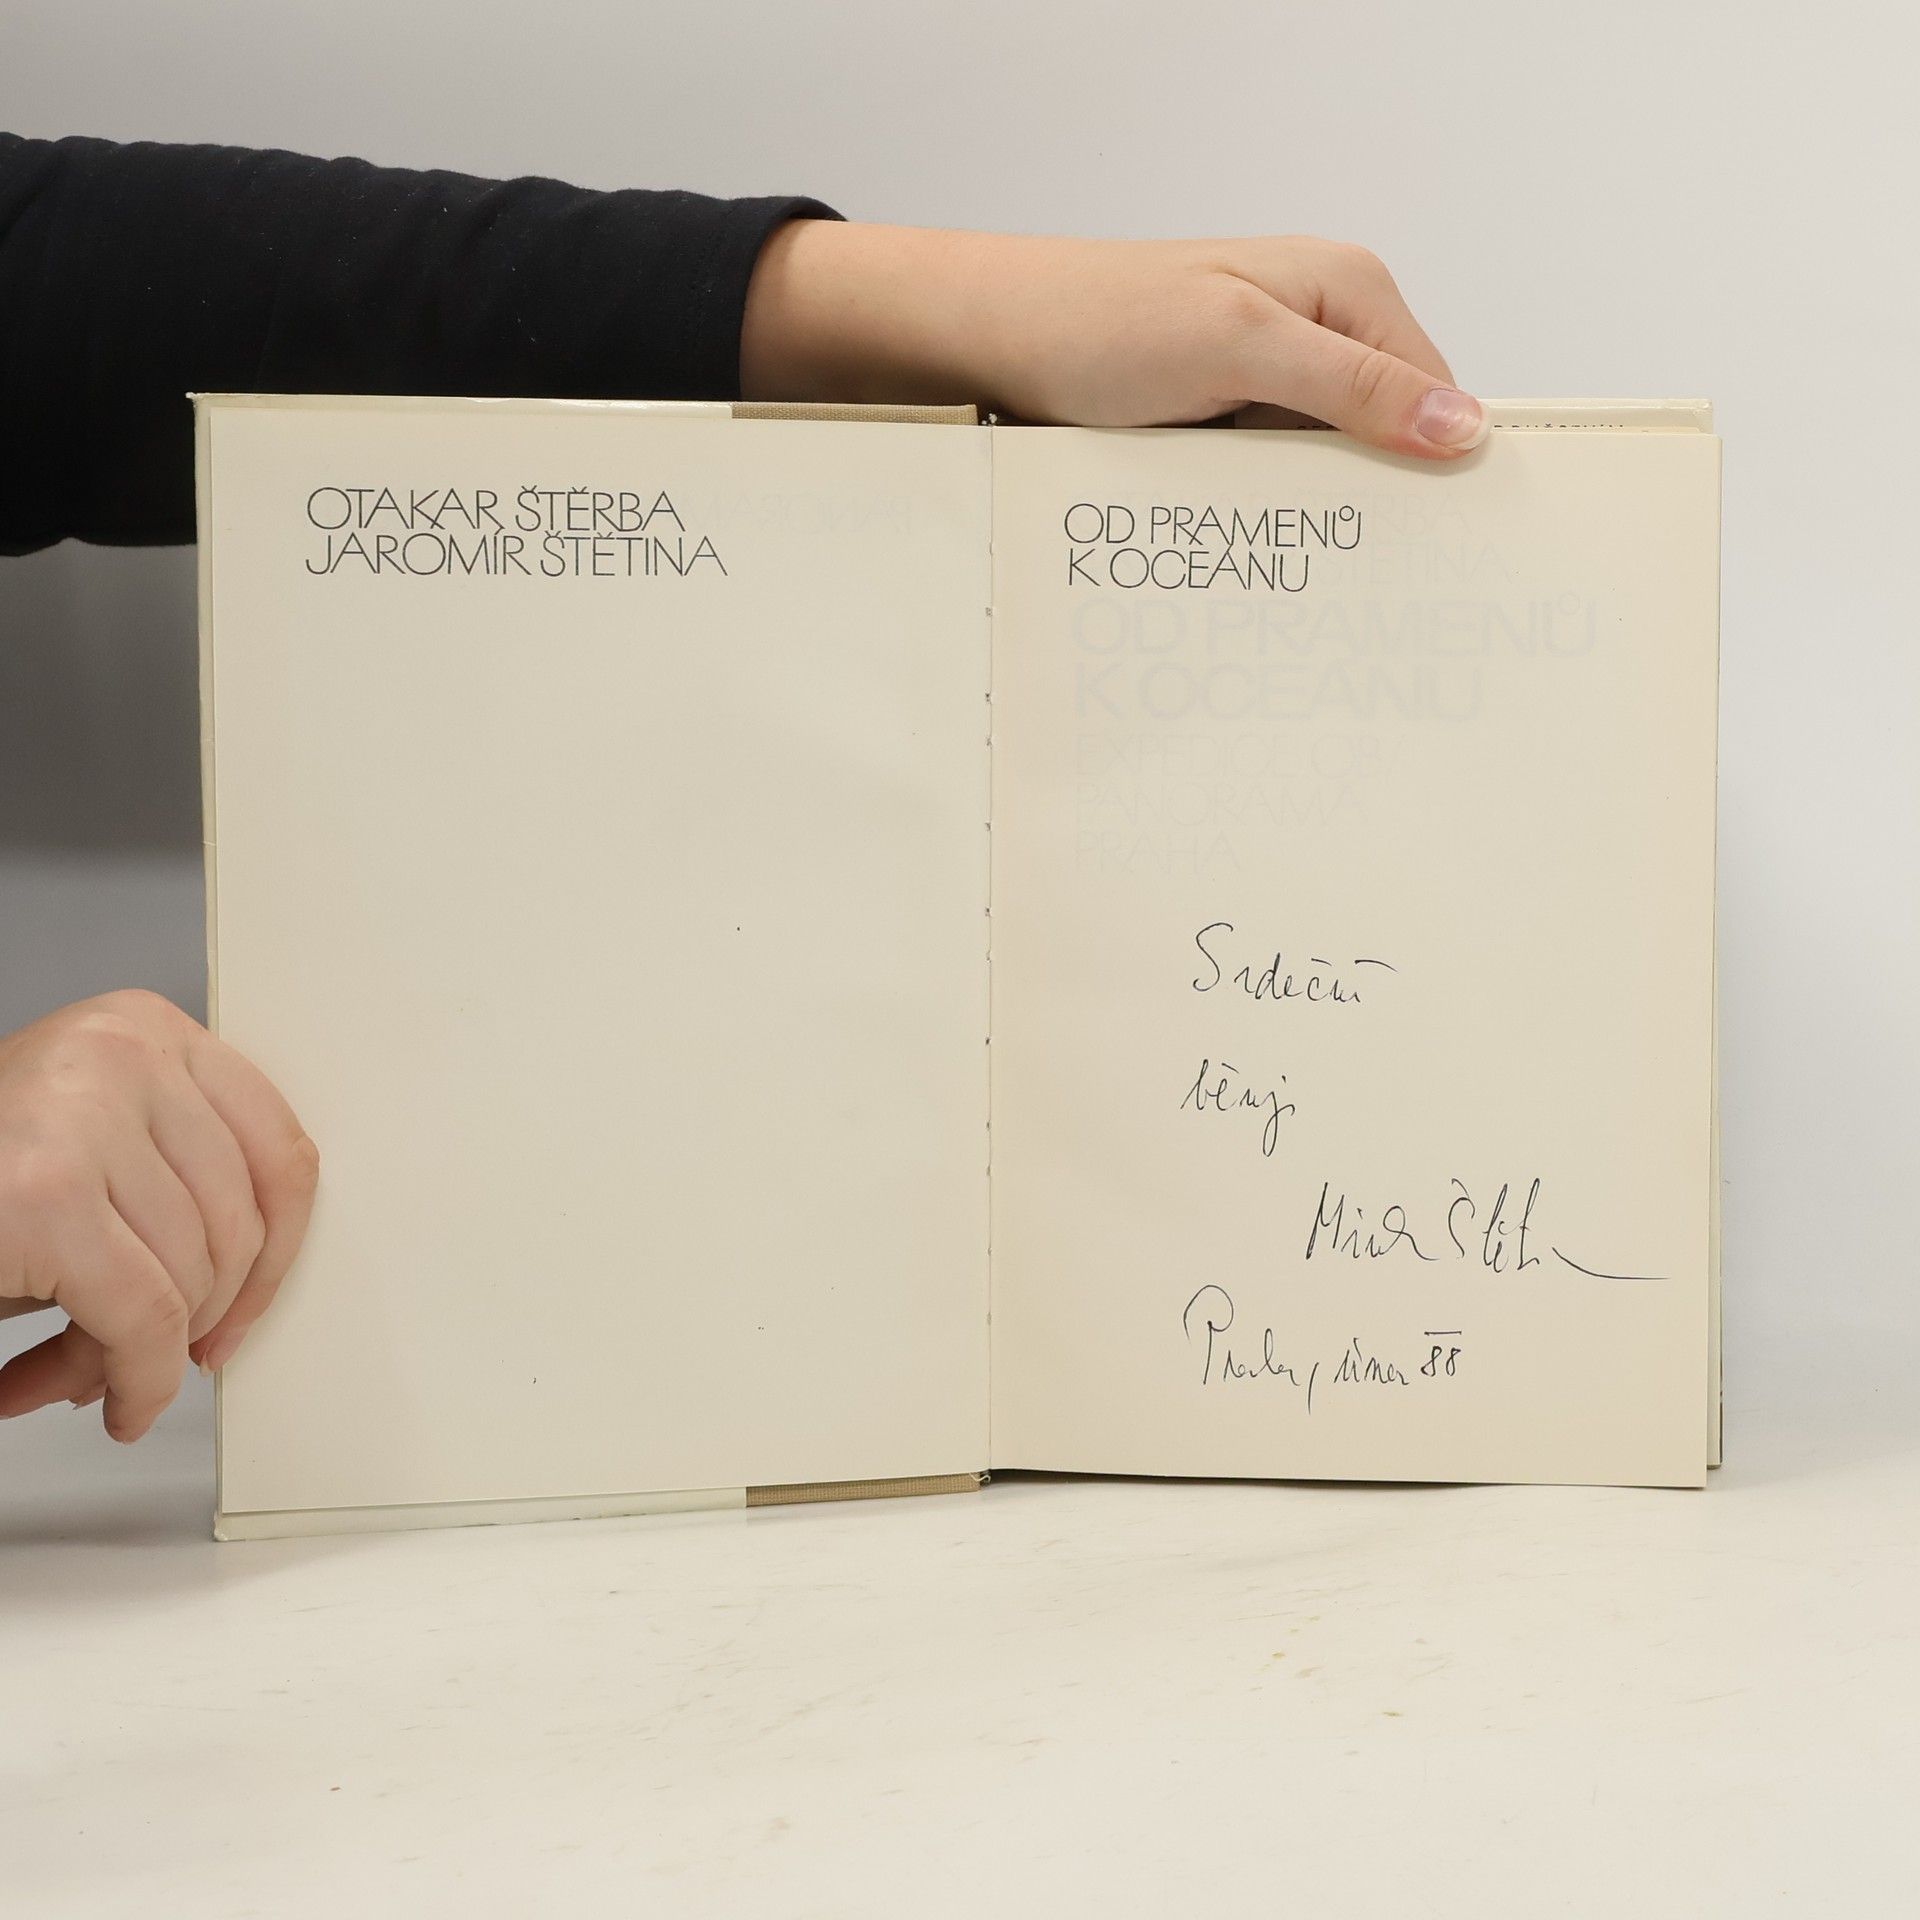 OTAKAR ŠTĚRBA
JAROMÍR ŠTĚTINA
OD PRAMENŮ
K OCEÁNU
OD PRAMENŮ
K OCEÁNU
EXPEDICE
PANORAMA
PRAHA
Srdečně
Praha, únor 88